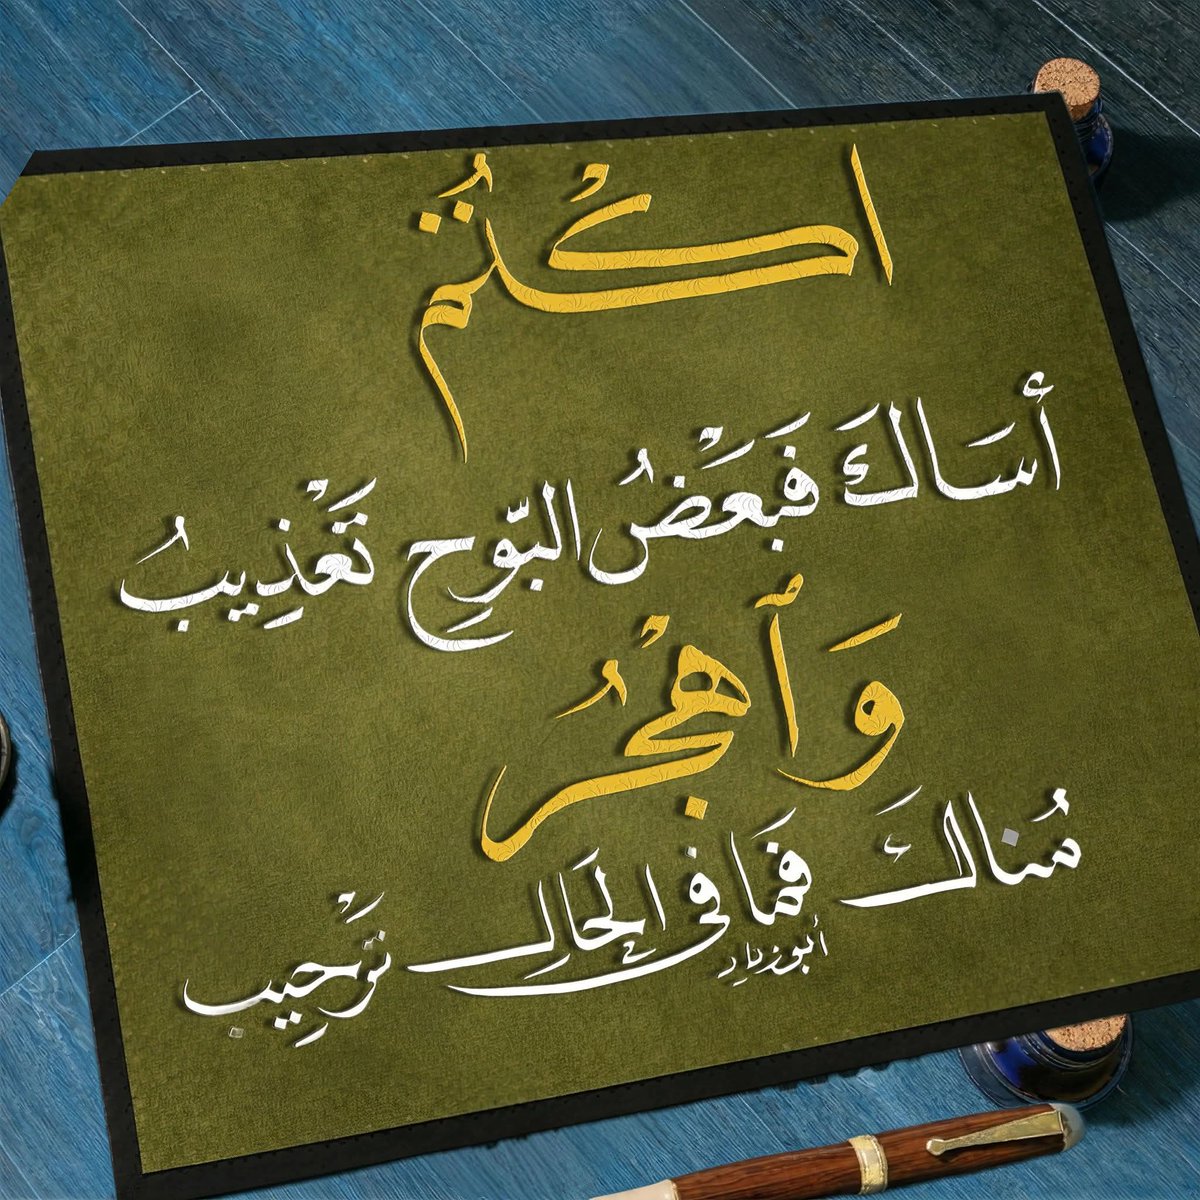 اكْتُم
أَسَاكَ فَبَعْضُ البّوحِ تَعْذِيبُ
وَأهْجُرُ
مُناكَ فَما في الحَالِ تَرْحِيب
أبوزياد